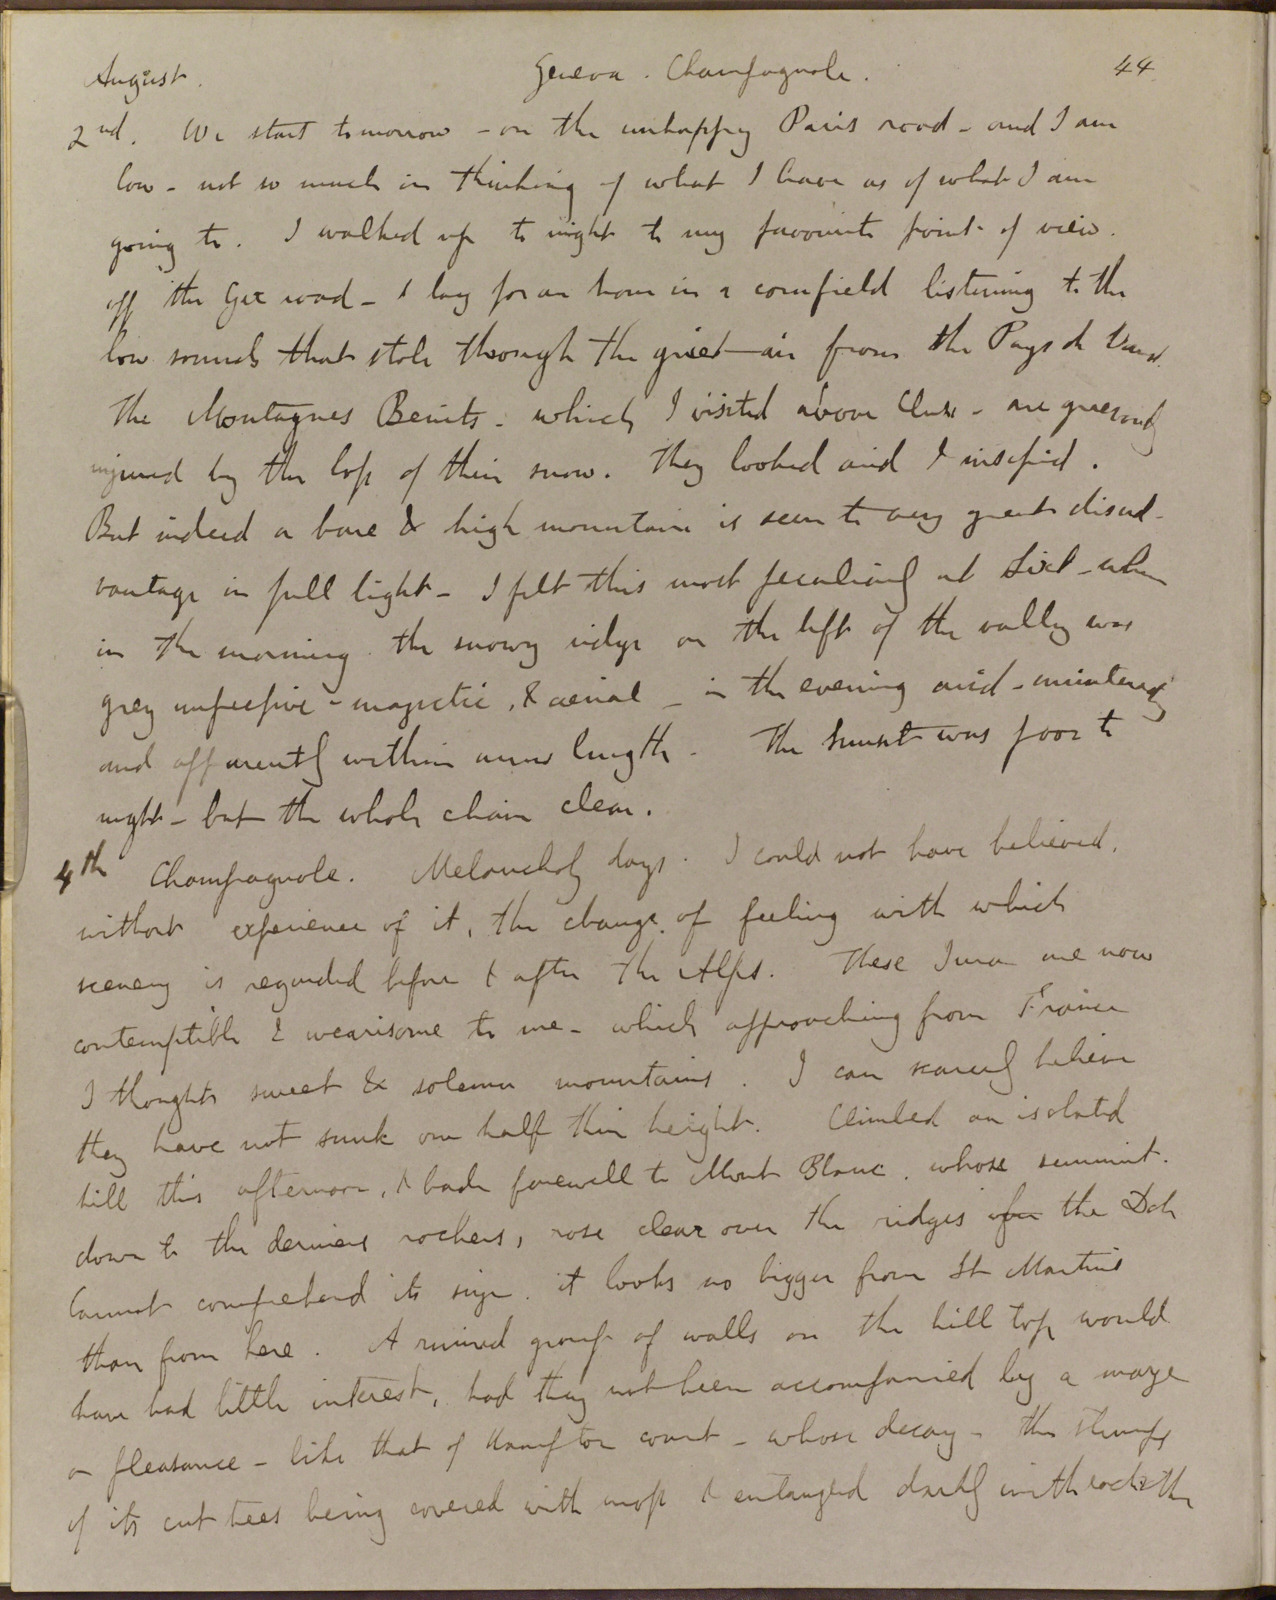 August. Geneva. Champagnole. 44
2nd. We start tomorrow - on the unhappy Paris road - and I am
low - not so much in thinking of what I leave as of what I am
going to. I walked up to night to my favourite point of view.
off the Gex road - & lay for an hour in a cornfield listening to the
low sounds that stole through the quiet air from the Pays de Vaud.
The Montagnes Benits - which I visited above Cluse - are grievously
injured by the loss of their snow. They looked arid & insipid.
But indeed a bare & high mountain is seen to very great disad-
vantage in full light - I felt this most peculiarly at Sixt - when
in the morning the snowy ridge on the left of the valley was
grey impressive - majestic, & aerial - in the evening arid - uninteresting
and apparently within arms length - The sunset was poor to
night - but the whole chain clear.
4th Champagnole. Melancholy days. I could not have believed,
without experience of it, the change of feeling with which
scenery is regarded before & after the Alps. These Jura are now
contemptible & wearisome to me - which approaching from France
I thought sweet & solemn mountains. I can scarcely believe
they have not sunk one half their height. Climbed an isolated
hill this afternoon, & bade farewell to Mont Blanc. whose summit.
down to the derniers rochers, rose clear over the ridges the Dole
Cannot comprehend its size. it looks no bigger from St Martins
than from here. A ruined group of walls on the hill top would
have had little interest, had they not been accompanied by a maze
or pleasance - like that of Hampton court - whose decay - the stumps
of its cut trees being covered with moss & entangled darkly with